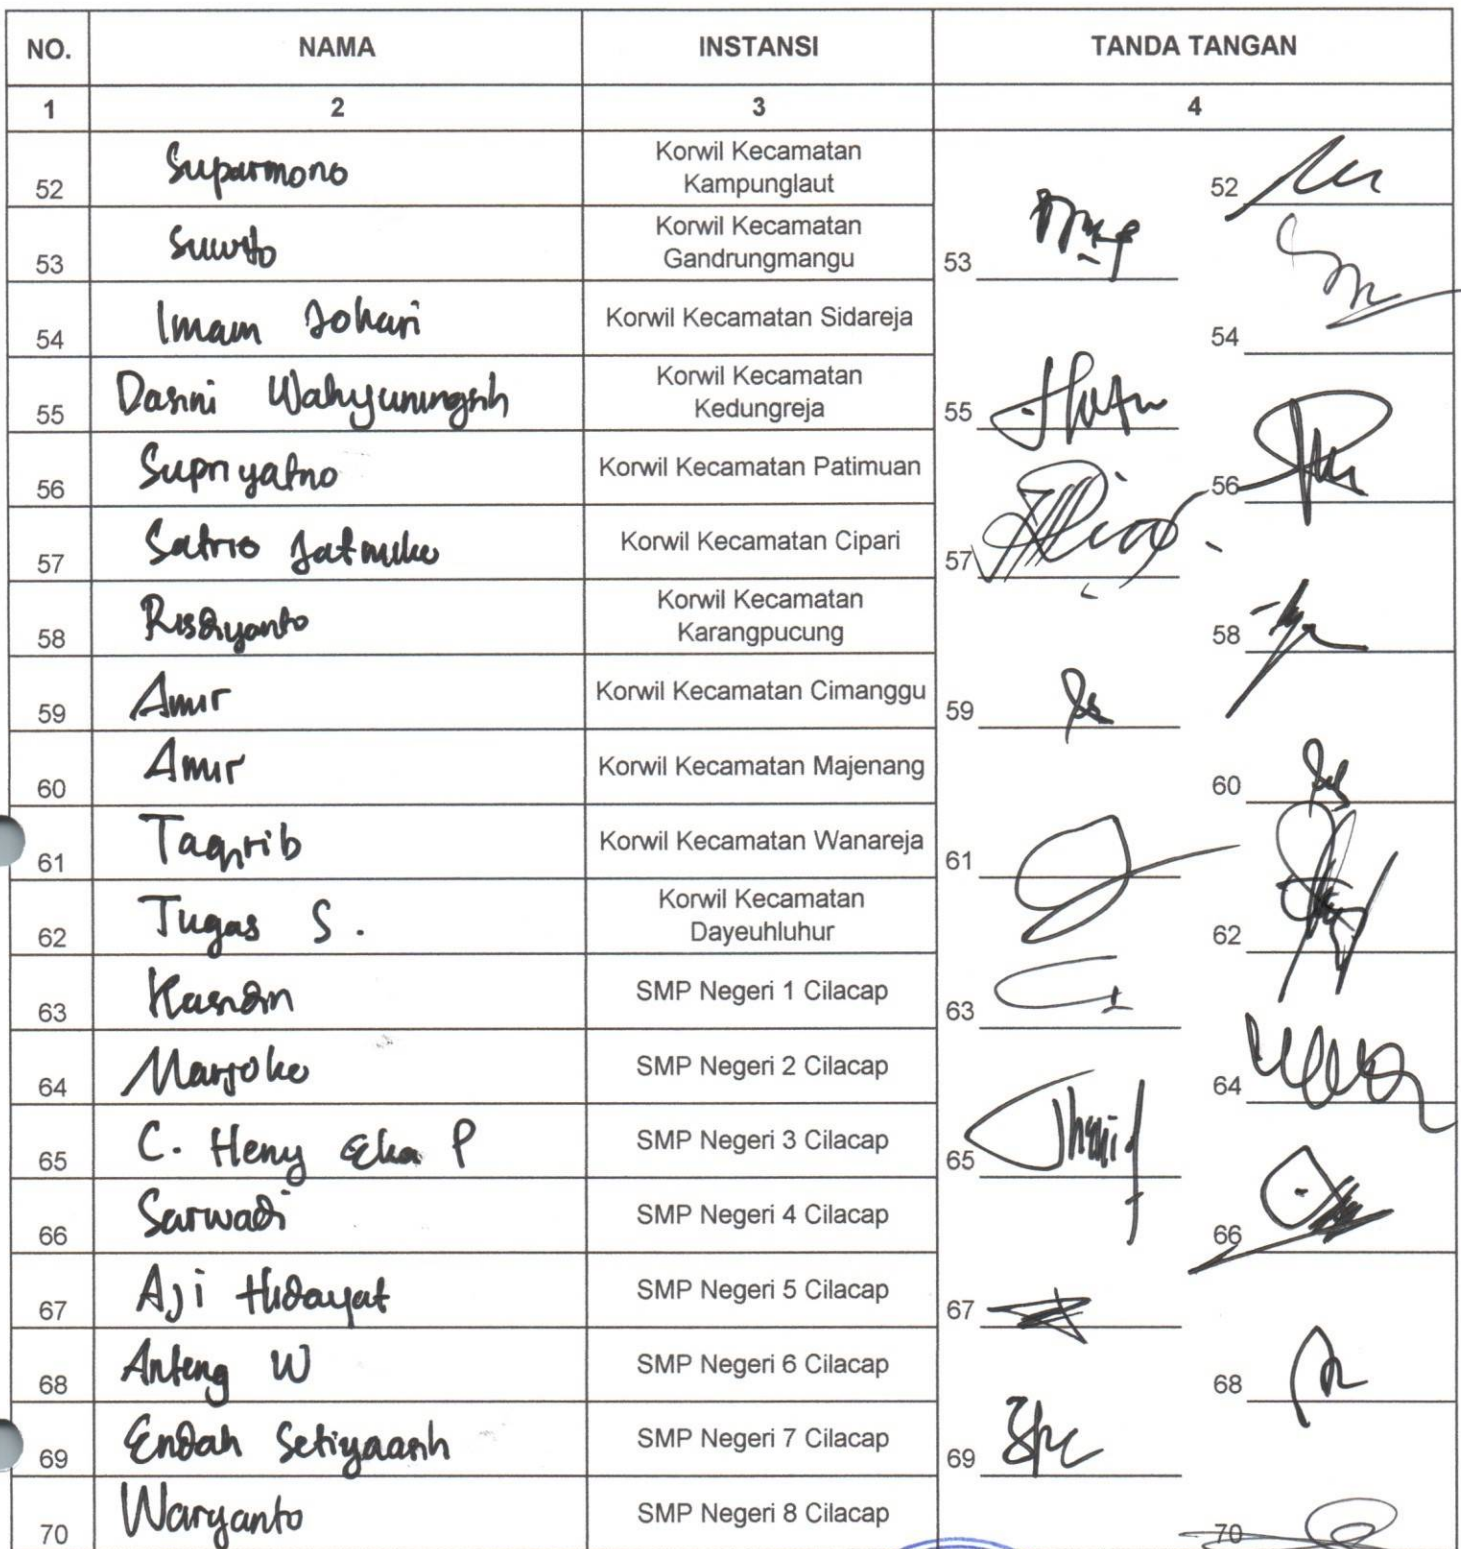 NO. NAMA INSTANSI TANDA TANGAN
1 2 3 4
52 Suparmono Korwil Kecamatan Kampunglaut 52
53 Suwito Korwil Kecamatan Gandrungmangu 53
54 Imam Johari Korwil Kecamatan Sidareja 54
55 Dasni Wahyuningsih Korwil Kecamatan Kedungreja 55
56 Supriyatno Korwil Kecamatan Patimuan 56
57 Satrio Jatmiko Korwil Kecamatan Cipari 57
58 Risdiyanto Korwil Kecamatan Karangpucung 58
59 Amir Korwil Kecamatan Cimanggu 59
60 Amir Korwil Kecamatan Majenang 60
61 Taqrib Korwil Kecamatan Wanareja 61
62 Tugas S. Korwil Kecamatan Dayeuhluhur 62
63 Kasidin SMP Negeri 1 Cilacap 63
64 Marjoko SMP Negeri 2 Cilacap 64
65 C. Heny Eka P SMP Negeri 3 Cilacap 65
66 Sarwadi SMP Negeri 4 Cilacap 66
67 Aji Hidayat SMP Negeri 5 Cilacap 67
68 Anteng W SMP Negeri 6 Cilacap 68
69 Endah Setiyaasih SMP Negeri 7 Cilacap 69
70 Waryanto SMP Negeri 8 Cilacap 70